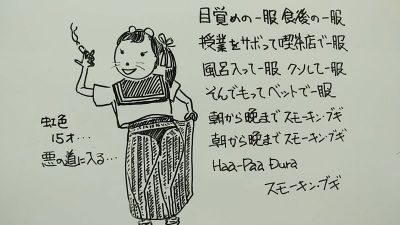 目覚めの一服 食後の一服
授業をサボって喫茶店で一服
風呂入って一服 クソして一服
そんでもってベットで一服
朝から晩まで スモーキン・ブギ
朝から晩まで スモーキン・ブギ
Haa-Paa Dura
スモーキン・ブギ
虹色
15才…
悪の道に入る…